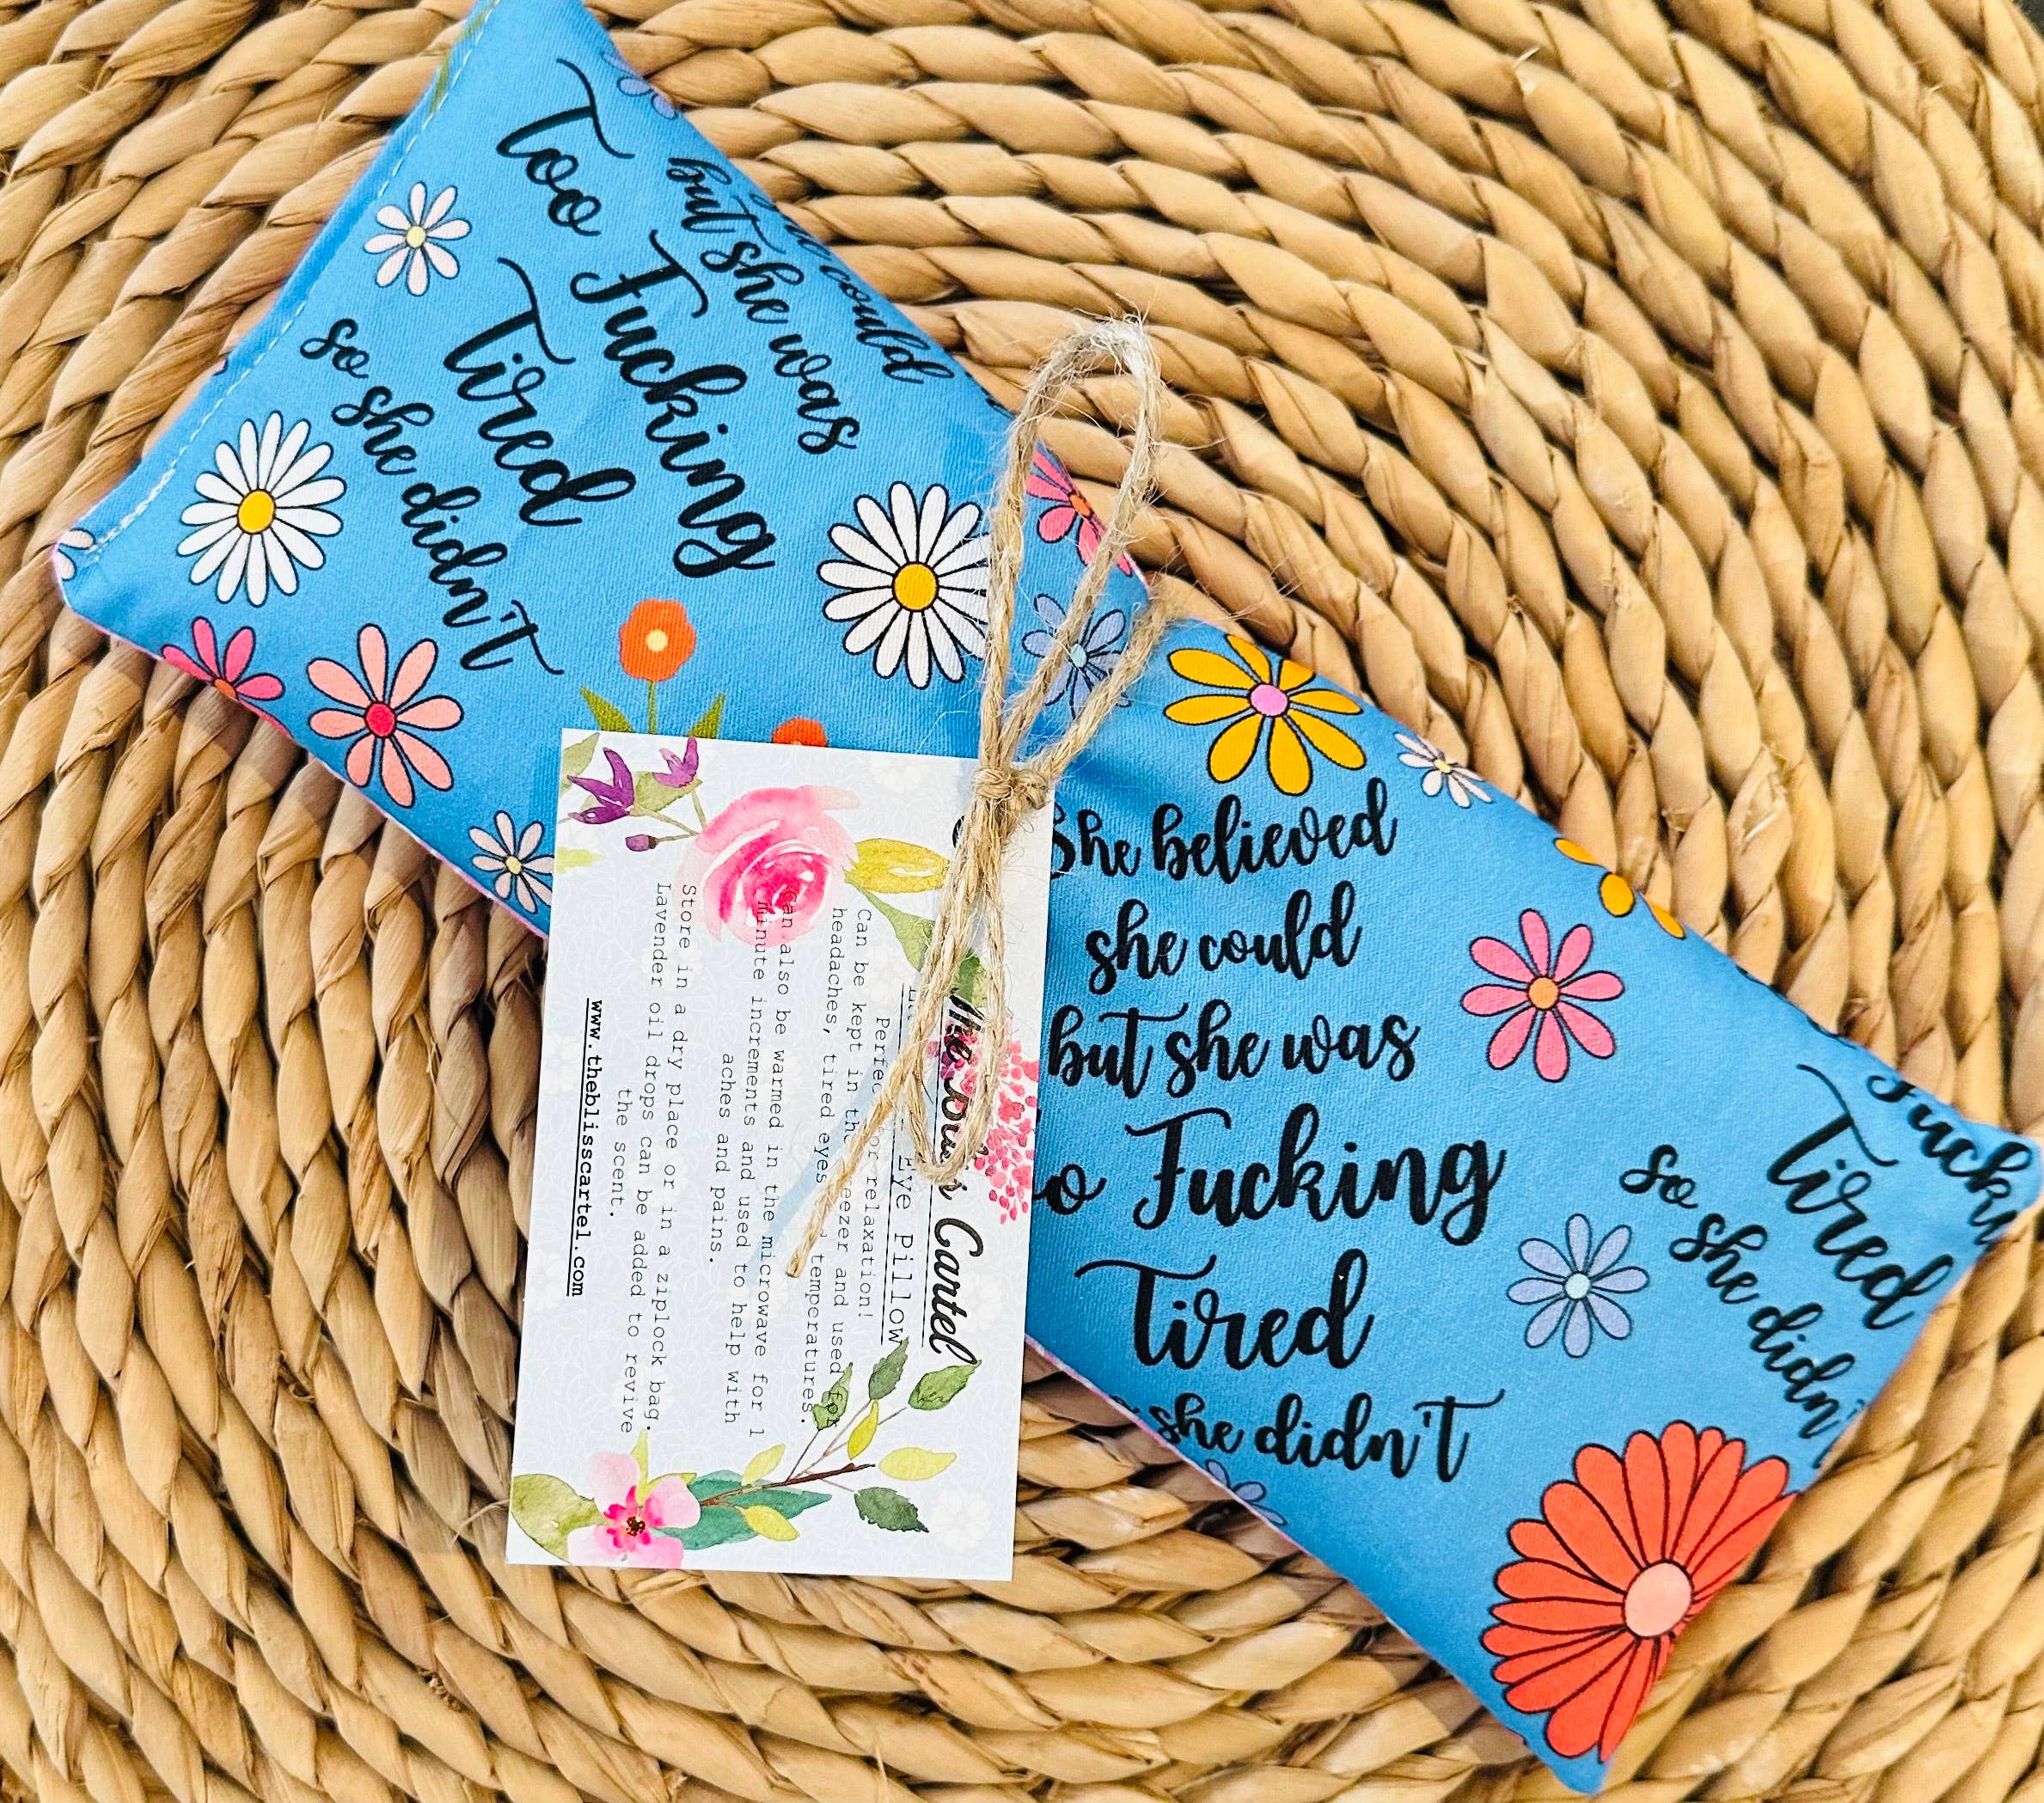 could
but she was
Too Fucking
Tired
so she didn't
She believed
she could
but she was
Fucking
Tired
she didn't
Tired
so she didn't
Cartel
Eye Pillow
relaxation!
Can be kept in the and used for
headaches, tired eyes temperatures.
also be warmed in the microwave for 1
minute increments and used to help with
aches and pains.
Store in a dry place or in a ziplock bag.
Lavender oil drops can be added to revive
the scent.
www.theblisscartel.com